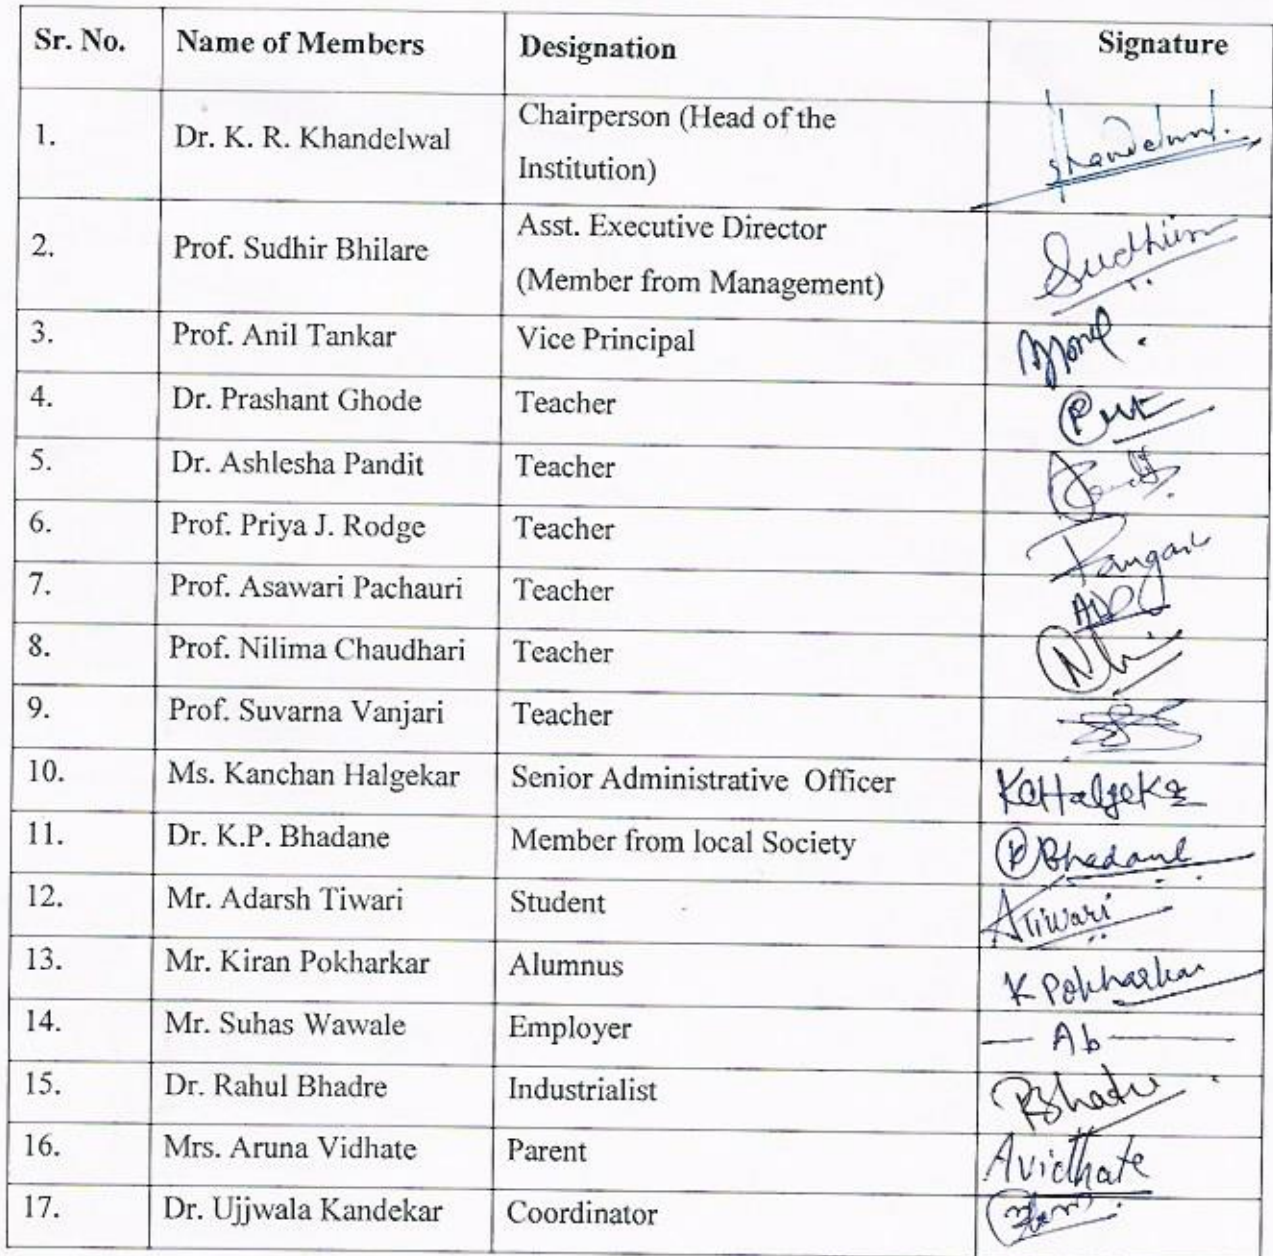 Sr. No. Name of Members Designation Signature
1. Dr. K. R. Khandelwal Chairperson (Head of the
Institution) Khandelwal.
2. Prof. Sudhir Bhilare Asst. Executive Director
(Member from Management) Sudhir
3. Prof. Anil Tankar Vice Principal
4. Dr. Prashant Ghode Teacher
5. Dr. Ashlesha Pandit Teacher
6. Prof. Priya J. Rodge Teacher
7. Prof. Asawari Pachauri Teacher
8. Prof. Nilima Chaudhari Teacher
9. Prof. Suvarna Vanjari Teacher
10. Ms. Kanchan Halgekar Senior Administrative Officer
11. Dr. K.P. Bhadane Member from local Society Bhadane
12. Mr. Adarsh Tiwari Student ATiwari
13. Mr. Kiran Pokharkar Alumnus K Pokharkar
14. Mr. Suhas Wawale Employer — Ab —
15. Dr. Rahul Bhadre Industrialist RBhadre
16. Mrs. Aruna Vidhate Parent Avidhate
17. Dr. Ujjwala Kandekar Coordinator